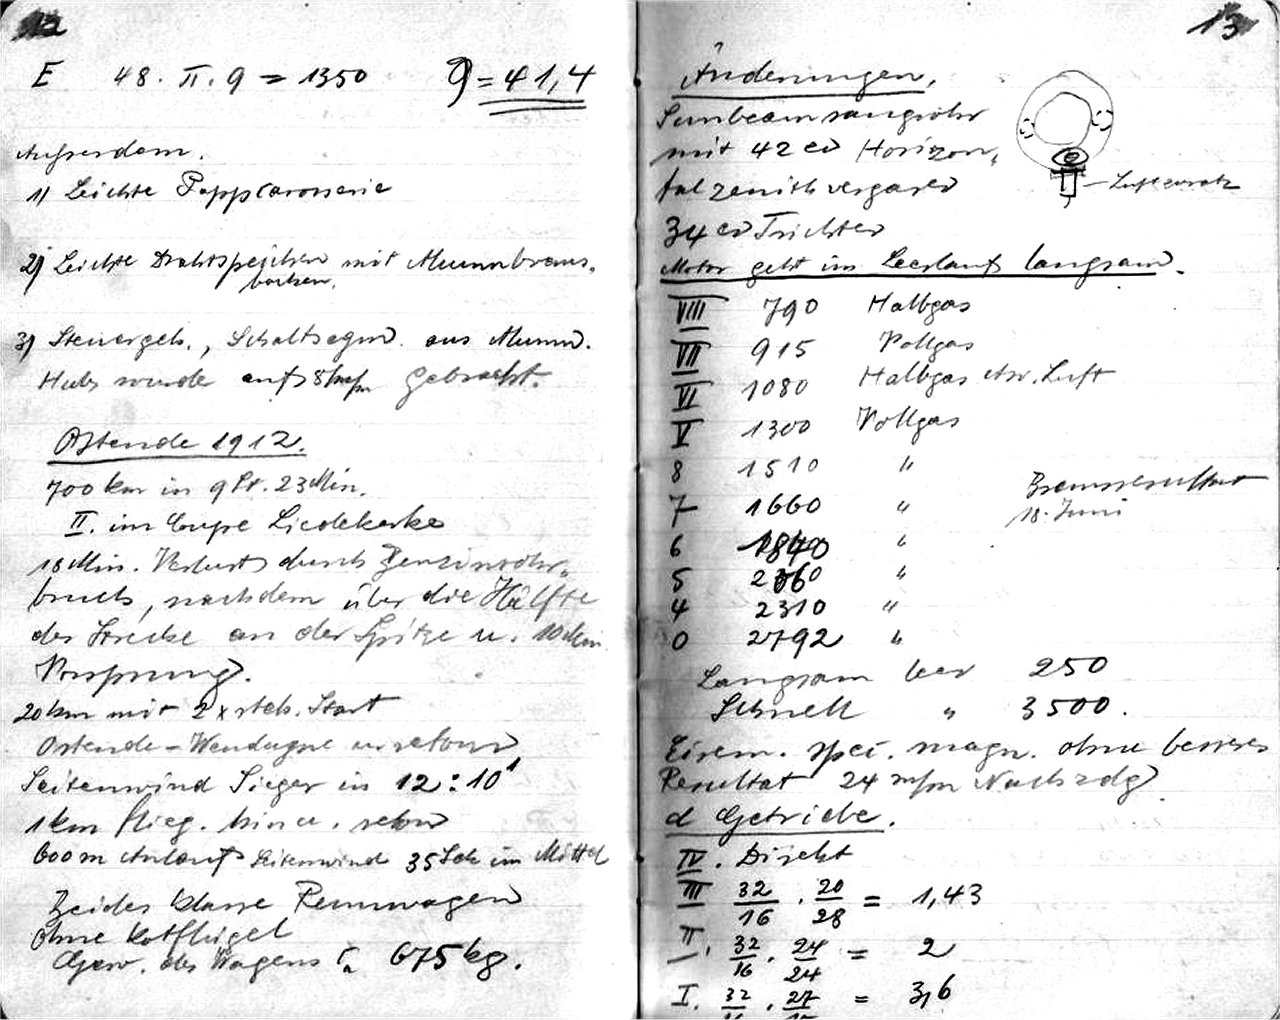 12
E 48. II. 9 = 1350 9 = 41,4
Ausserdem.
1) Leichte Pappcarosserie
2) Leichte Drahtspeichen mit Alumnbrems.
backen.
3) Steuergeh., Schaltsegm. aus Alumn.
Hub wurde auf 8 m/m gebracht.
Ostende 1912.
700 km in 9 St. 23 Min.
II. im Coupe Liedekerke
18 Min. Verlust durch Benzinrohr-
bruch, nachdem über die Hälfte
der Strecke an der Spitze u. 10 Min
Vorsprung.
20 km mit 2 x steh. Start
Ostende - Wendugne u retour
Seitenwind Sieger in 12:10'
1 km flieg. hin u. retour
600 m Anlauf Seitenwind 35 Sek im Mittel
Beides Klasse Rennwagen
ohne Kotflügel
Gew. des Wagens 675 kg.
13
Änderungen.
Sunbeamsaugrohr
mit 42 er Horizon-
talzenithvergaser
34 er Trichter
Luftzusatz
Motor geht im Leerlauf langsam.
VIII 790 Halbgas
VII 915 Vollgas
VI 1080 Halbgas Luft
V 1300 Vollgas
8 1510 "
7 1660 "
Bremsresultat
18. Juni
6 1840 "
5 "
4 2310 "
0 2792 "
Langsam leer 250
Schnell " 3500.
Eisem. spec. magn. ohne besseres
Resultat 24 m/m Nachzdg
d Getriebe.
IV. Direkt
III 32/16 . 20/28 = 1,43
II. 32/16 . 24/24 = 2
I. 32/16 . 27/15 = 3,6